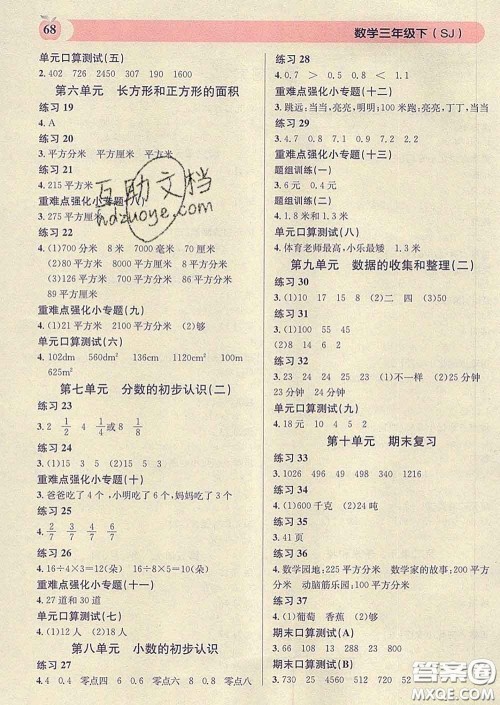 68
数学三年级下(SJ)
单元口算测试(五)
4. 402 726 2450 307 190 1600
第六单元 长方形和正方形的面积
练习 19
4. A
练习 20
3. 平方分米 平方厘米 平方米
练习 21
4. 215 平方
重难点强化小专题
3. 275 平方厘米
练习 22
4. (1)700 分米 8 米 7000 毫米 70 厘米
(2)86 平方厘米 89 平方厘米 56 平方厘米
(3)126 平方厘米 700 平方分米 86 平方分米
89 平方厘米
重难点强化小专题(九)
4. (1)21 平方米 2100 平方分米 (2)够
单元口算测试(六)
4. 102dm 560dm² 136cm 1120cm² 100m
625m²
第七单元 分数的初步认识(二)
练习 23
3. 2 1/2 4 1/4 8 1/8
练习 24
4. (1)15 3 5 (2)15 5 3
重难点强化小专题(十)
4. 爸爸吃了 4 个,小明吃了 6 个,妈妈吃了 3 个
练习 25
4. 2/7 3/7 4/7 6/7
练习 26
4. 16÷4×3=12(朵) 16÷8×5=10(朵)
重难点强化小专题(十一)
4. 27 道和 30 道
单元口算测试(七)
4. (1)12 人 (2)18 人
第八单元 小数的初步认识
练习 27
4. 4 0.4 零点四 6 0.6 零点六 8 0.8 零点八
练习 28
4. 0.7 > 0.5 0.8 < 1.1
重难点强化小专题(十二)
3. 跳远:当当,亮亮,明明;100 米跑:亮亮,丁丁,当当
练习 29
3. 4.6 0.7 4.8 0.8 2.9
重难点强化小专题(十三)
题组训练(一)
3. 6 元 0.4 元
题组训练(二)
4. 1.8 米和 1.3 米
单元口算测试(八)
4. 体育老师最高,小乐最矮 1.3 米
第九单元 数据的收集和整理(二)
练习 30
3. (1)10 17 15 8 (2)二 四 (3)50
练习 31
3. (1)100 55 45
(2) 8 14 9 11 5 8
练习 32
3. 23 24 24 25 23 (1)不一样 (2)25 分钟
23 分钟 (3)24 分钟
单元口算测试(九)
4. 18 元 10 4 5 2
第十单元 期末复习
练习 33
3. 1026 496 30 1148 30 3268
练习 34
4. (1)600 千克 (2)够
练习 35
3. 41 页
练习 36
4. 数学园地:225 平方分米 数学家的故事:200 平方
分米 动脑筋乐园:100 平方分米
练习 37
4. (1)葡萄 香蕉 (2)够
期末口算测试(A)
4. 380 25 36
期末口算测试(B)
3. 730 25 4510 56
互助文档
hdzuoye.com
答案圈
MXQE.COM